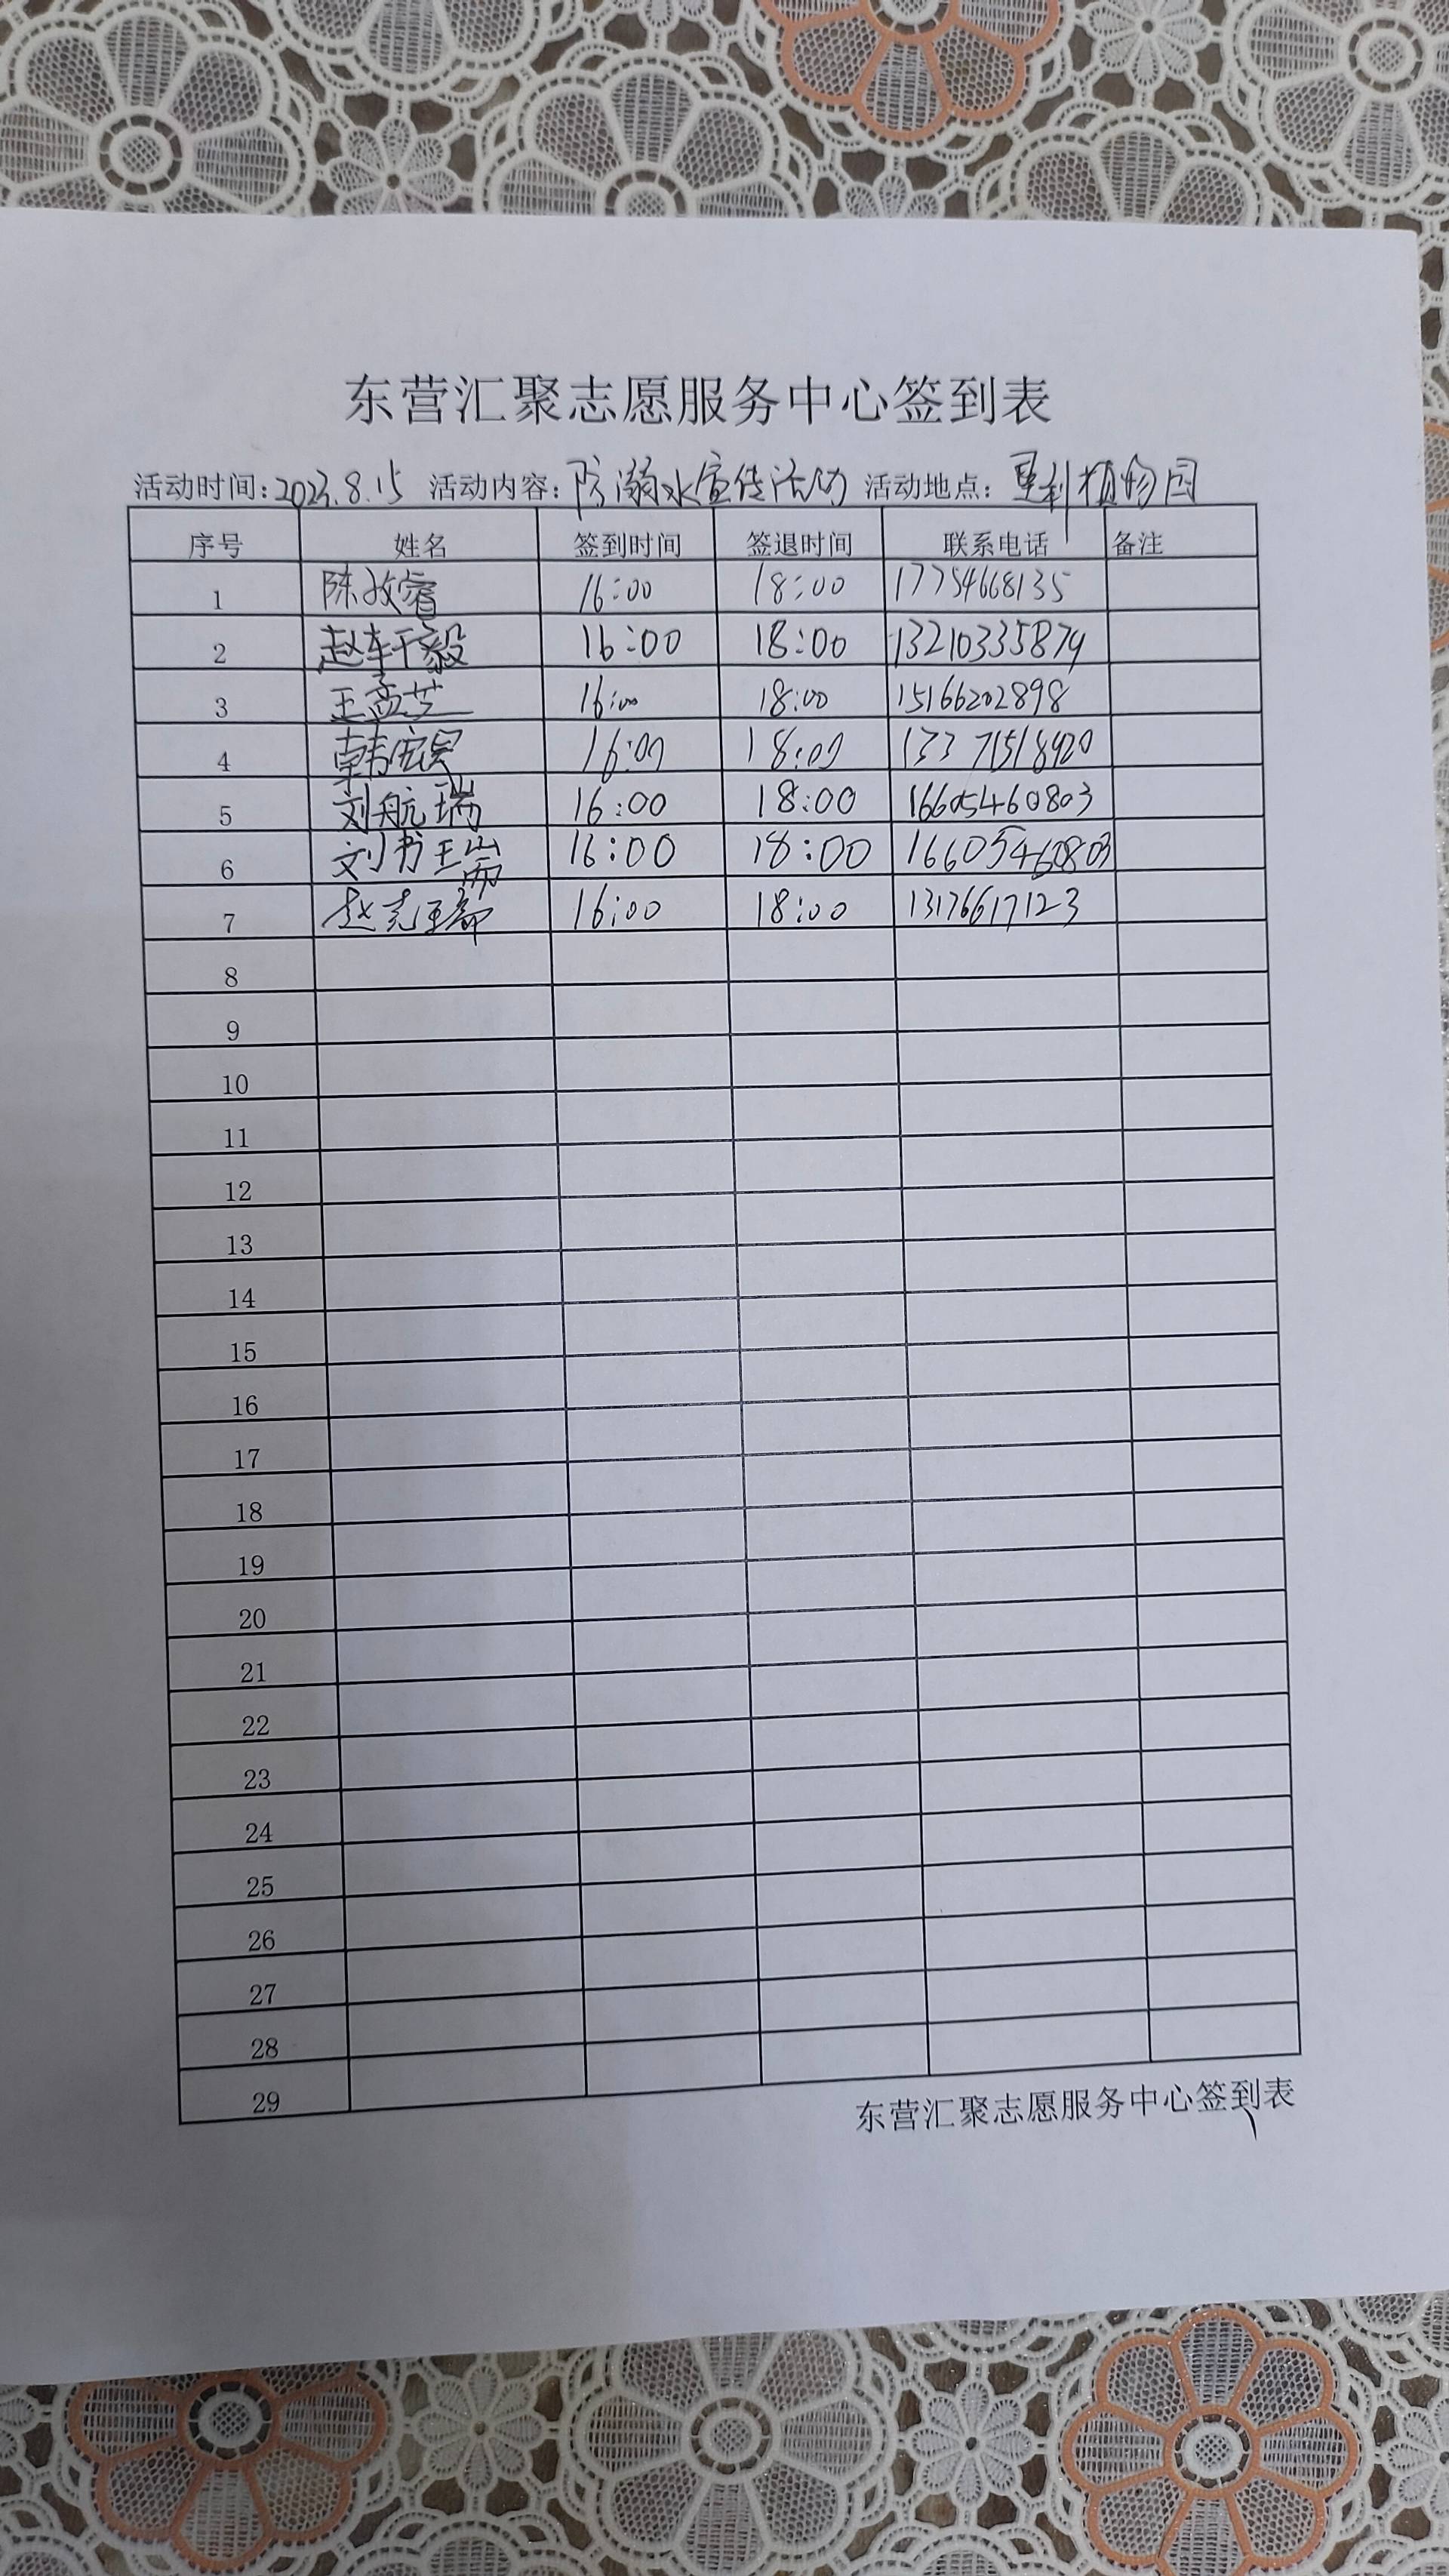 东营汇聚志愿服务中心签到表
活动时间:2023.8.15 活动内容:防溺水宣传活动 活动地点:垦利植物园
序号 姓名 签到时间 签退时间 联系电话 备注
1 陈玫睿 16:00 18:00 17754668135
2 赵 毅 16:00 18:00 13210335879
3 王孟芝 16:00 18:00 15166202898
4 韩宏昊 16:00 18:00 13371518920
5 刘航瑞 16:00 18:00 16605460803
6 刘书瑞 16:00 18:00 16605460803
7 赵 16:00 18:00 13176617123
8
9
10
11
12
13
14
15
16
17
18
19
20
21
22
23
24
25
26
27
28
29
东营汇聚志愿服务中心签到表